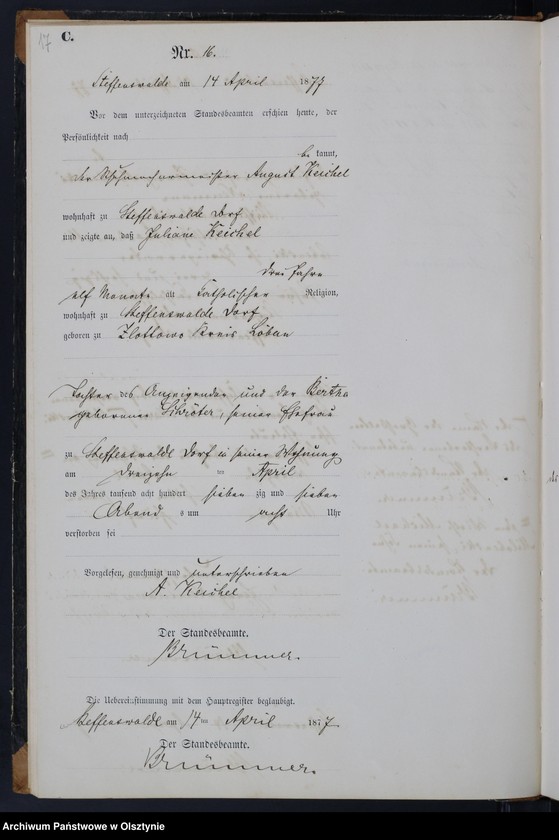 17
C.
Nr. 16.
Steffenswalde am 14 April 1877
Vor dem unterzeichneten Standesbeamten erschien heute, der
Persönlichkeit nach
be kannt,
der August Keichel
wohnhaft zu Steffenswalde Dorf
und zeigte an, daß Juliane Keichel
drei Jahre
elf Monate alt katholischer Religion,
wohnhaft zu Steffenswalde Dorf
geboren zu Zlottowo Kreis Löbau
Tochter des Anzeigenden und der Bertha
geborenen Schröter, seiner Ehefrau
zu Steffenswalde Dorf in seiner Wohnung
am dreizehn ten April
des Jahres tausend acht hundert sieben zig und sieben
Abend s um acht Uhr
verstorben sei
Vorgelesen, genehmigt und unterschrieben
A. Keichel
Der Standesbeamte.
Brümmer.
Die Uebereinstimmung mit dem Hauptregister beglaubigt.
Steffenswalde am 14 ten April 1877
Der Standesbeamte.
Brümmer.
Archiwum Państwowe w Olsztynie